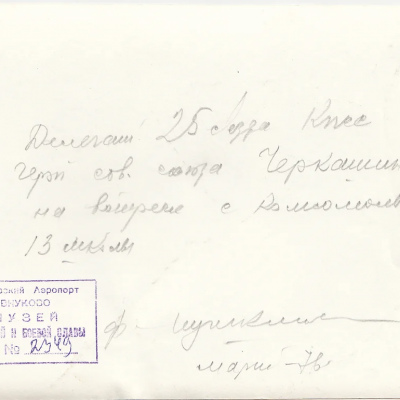 Делегат 25 съезда КПСС
герой сов. союза Черкашин
на встрече с комсомольц
13 школы
ский Аэропорт
ВНУКОВО
МУЗЕЙ
Й И БОЕВОЙ СЛАВЫ
№ 2349
ф.
март -76